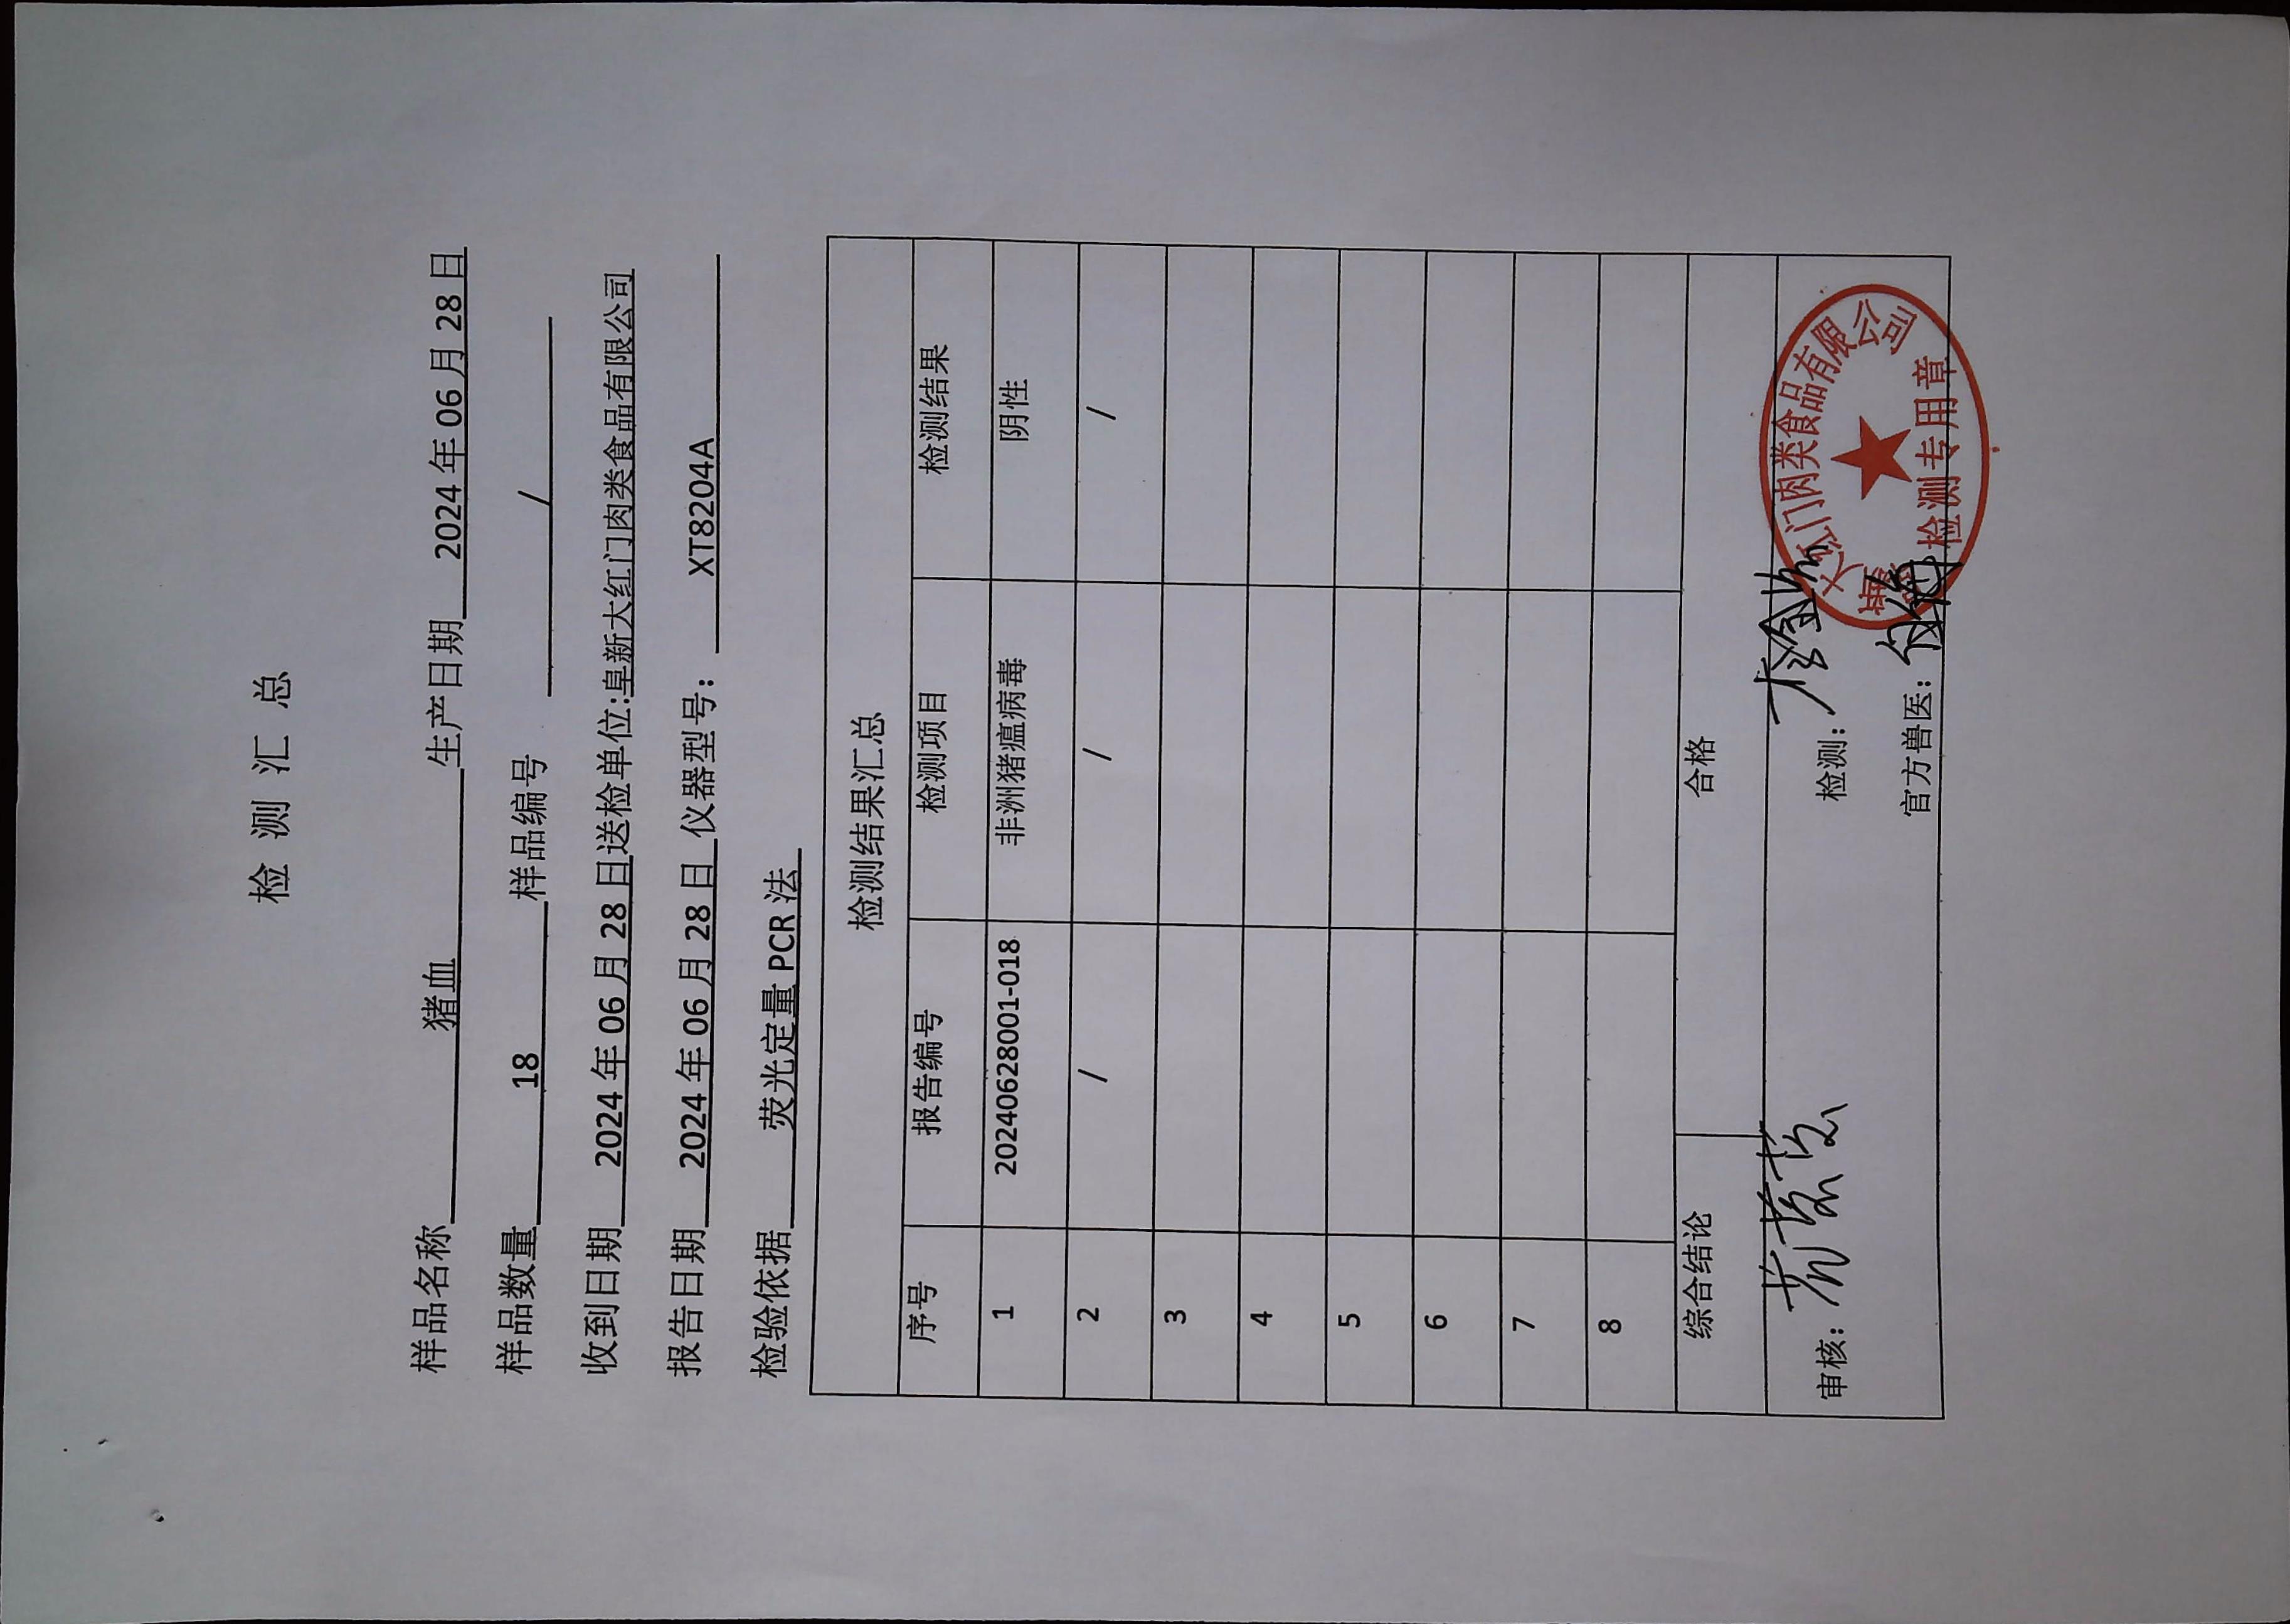 检测汇总
样品名称 猪血 生产日期 2024年06月28日
样品数量 18 样品编号 /
收到日期 2024年06月28日送检单位:阜新大红门肉类食品有限公司
报告日期 2024年06月28日 仪器型号： XT8204A
检验依据 荧光定量PCR法
检测结果汇总
序号 报告编号 检测项目 检测结果
1 20240628001-018 非洲猪瘟病毒 阴性
2 / / /
3
4
5
6
7
8
综合结论 合格
审核： 检测：
官方兽医：
大红门肉类食品有限公司
检测专用章